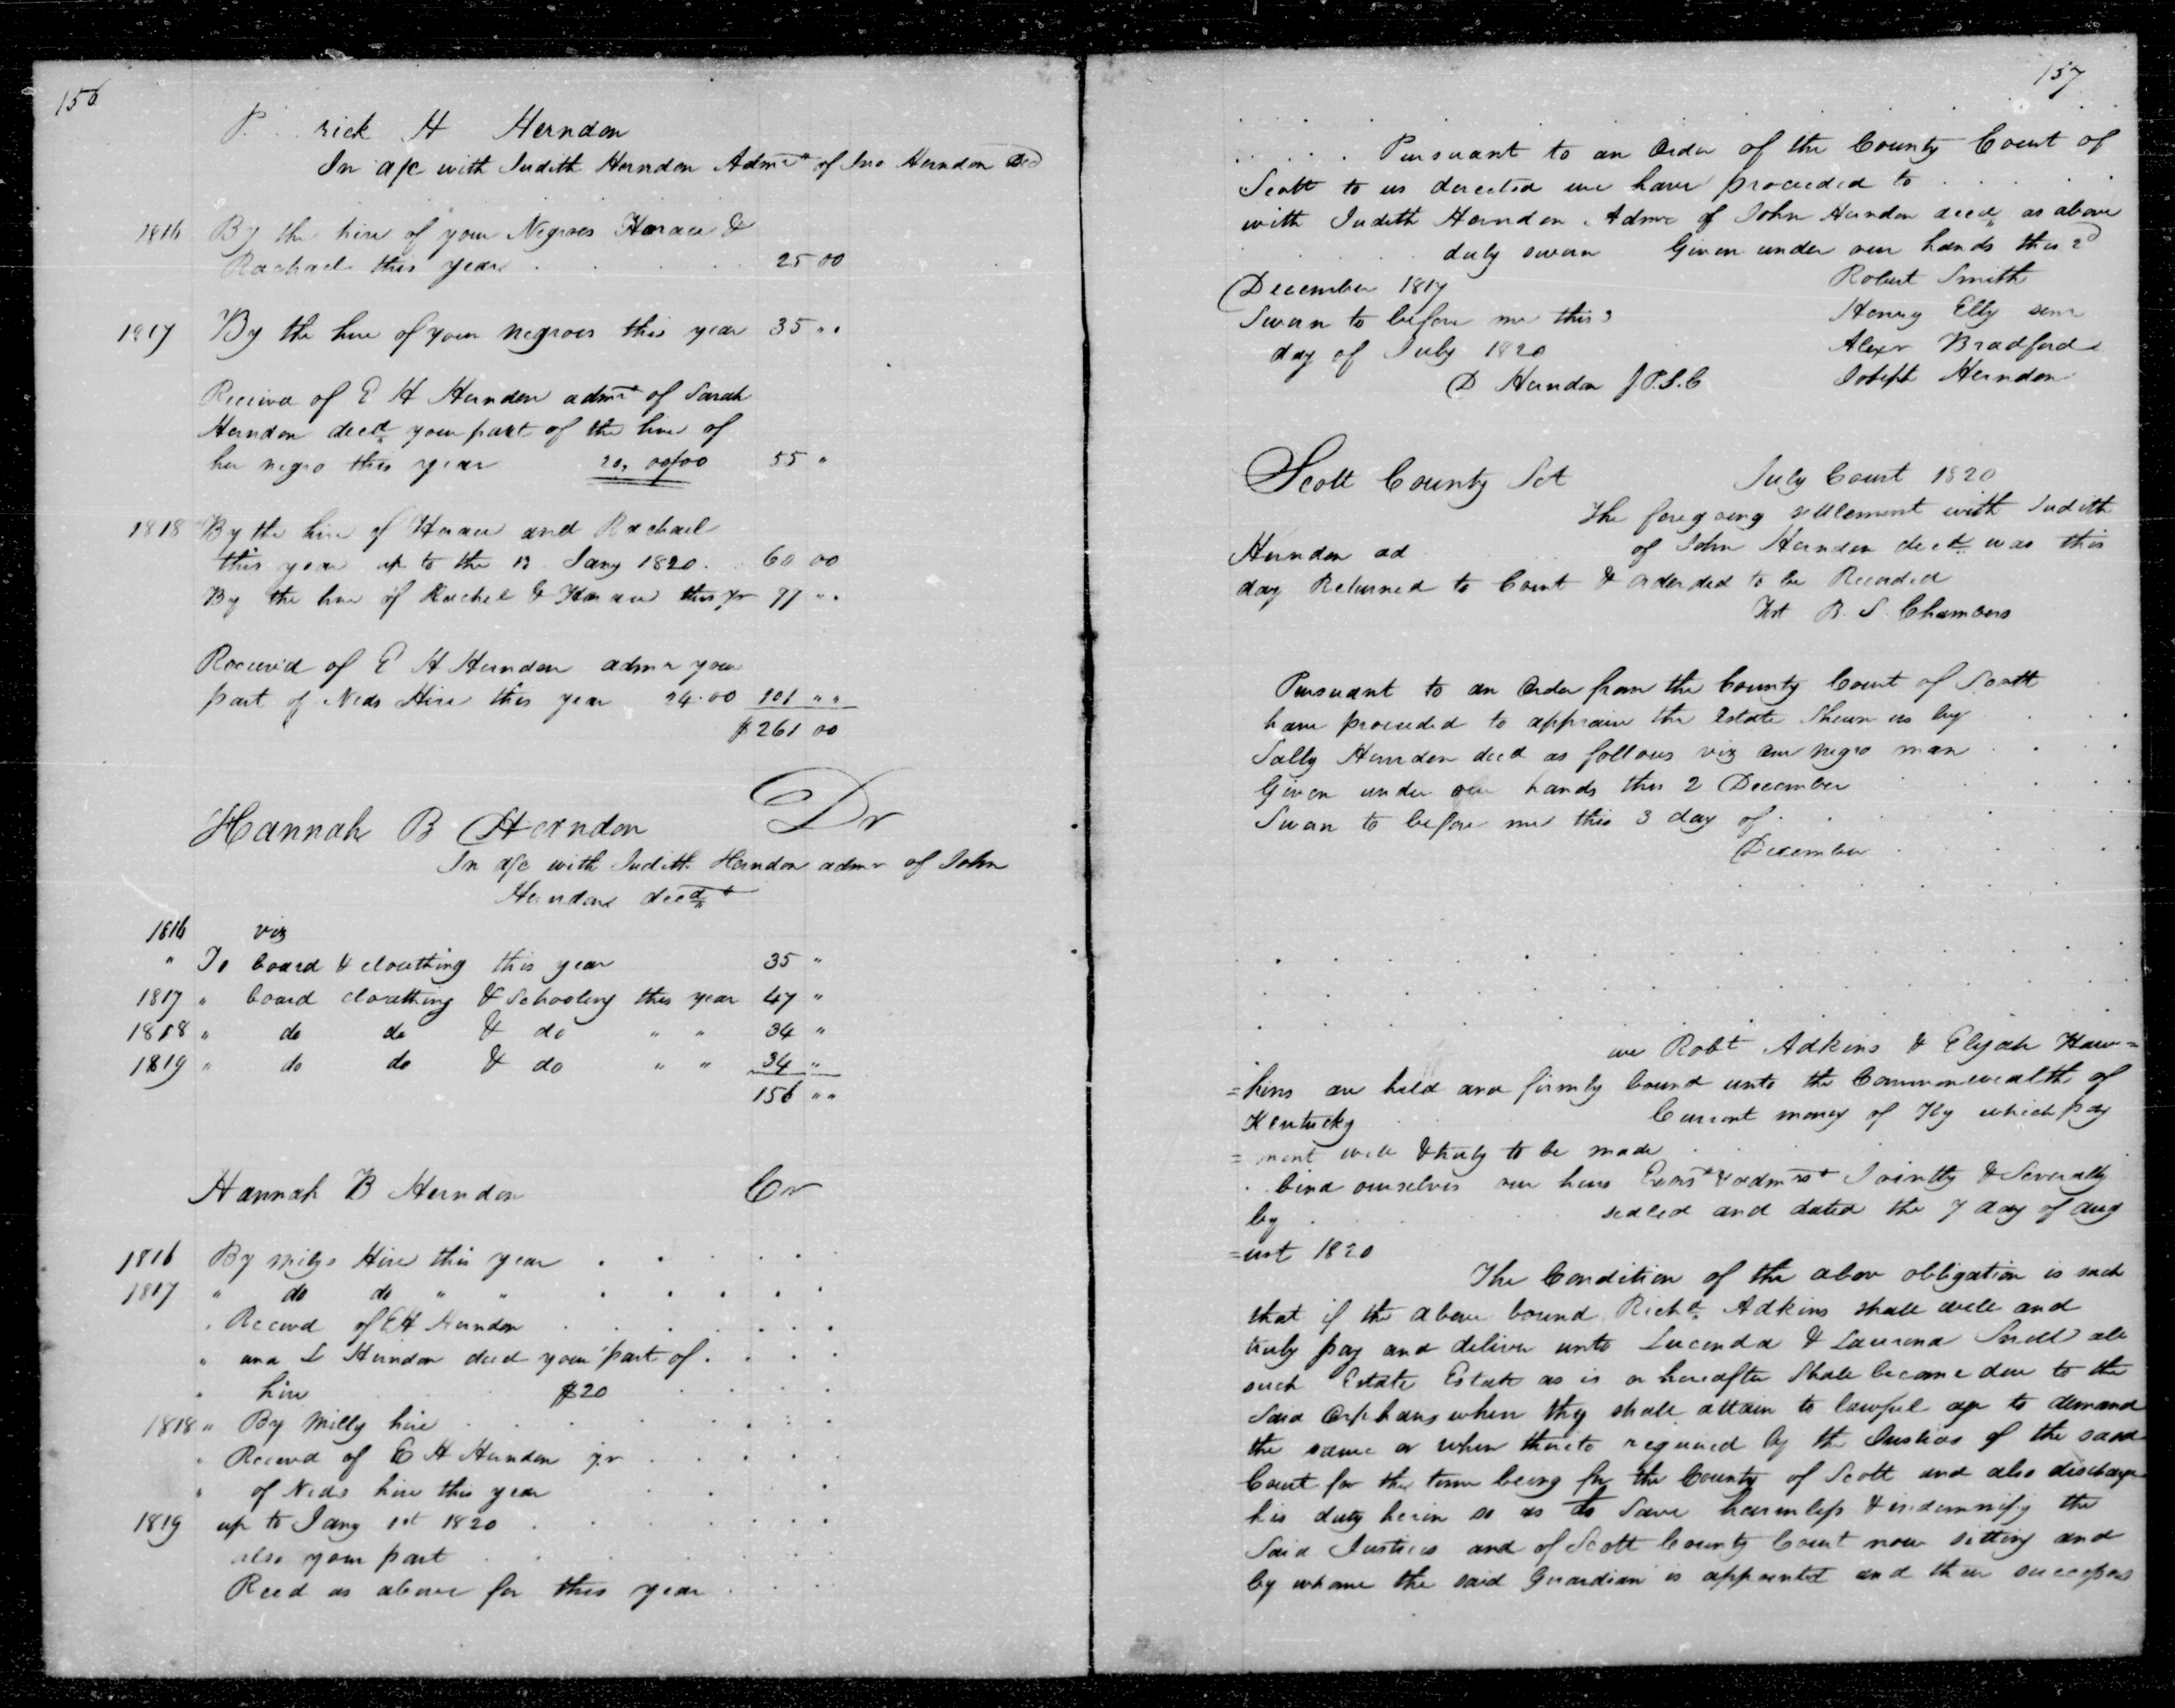 156
P . . rick H Herndon
In a/c with Judith Herndon Admrx of Jno Herndon Decd
1816 By the hire of your Negroes Horace &
Rachael this year . . . . 25 00
1817 By the hire of your negroes this year 35 " "
Receivd of E H Herndon admr of Sarah
Herndon decd your part of the hire of
her negro this year 20,00/00 55 "
1818 By the hire of Horace and Rachael
this year up to the 13 Jany 1820 . . 60 00
By the hire of Rachel & Horace this yr 77 " "
Receivd of E H Herndon admr your
part of Neds Hire this year 24.00 101 " "
$261 00
Hannah B Herndon Dr
In a/c with Judith Herndon admr of John
Herndon decd
1816 viz
" To board & cloathing this year 35 "
1817 " board cloathing & Schooling this year 47 "
1818 " do do & do " " 34 "
1819 " do do & do " " 34 "
150 " "
Hannah B Herndon Cr
1816 By Milys Hire this year . . . . .
1817 " do do " " . . . . .
" Receivd of E H Herndon . . . . . .
" and S Herndon decd your part of . . . .
" hire $20 . . . .
1818 " By Milly hire . . . . . . .
" Receivd of E H Herndon yr . . . .
" of Neds hire this year . . .
1819 up to Jany 1st 1820 . . . . . .
also your part . . . . . .
Recd as above for this year . . .
157
. . . . . Pursuant to an Order of the County Court of
Scott to us derected we have proceeded to . . . . .
with Judith Herndon Admrx of John Herndon decd as above
. . . duly sworn Given under our hands this 2d
December 1817 Robert Smith
Sworn to before me this 3 Henry Elly senr
day of July 1820 Alexr Bradford
D Herndon J.P.S.C Joseph Herndon
Scott County Sct July Court 1820
The foregoing settlement with Judith
Herndon ad of John Herndon decd was this
day Returned to Court & orderded to be Recorded
Tst B. S. Chambers
Pursuant to an Order from the County Court of Scott
have proceeded to appraise the Estate Shewn us by . . .
Sally Herndon decd as follows viz one negro man . . .
Given under our hands this 2 December . . . .
Sworn to before me this 3 day of . . . . .
December . . . .
we Robt Adkins & Elijah Haw=
=kins are held and firmly bound unto the Commonwealth of
Kentucky . . Current money of Ky which pay
=ment well & truly to be made . .
. bind ourselves our heirs Exors & admrs Jointly & Severally
by . . . sealed and dated the 7 day of Aug
=ust 1820
The Condition of the above obligation is such
that if the above bound Richd Adkins shall well and
truly pay and deliver unto Lucenda & Laurena Snell all
such Estate Estate as is or hereafter Shall become due to the
Said Orphans when thy shall attain to lawful age to demand
the same or when thereto required by the Justices of the said
Court for the time being for the County of Scott and also discharge
his duty herin so as to Save harmless & indemnify the
Said Justices and of Scott County Court now sitting and
by whome the said Guardian is appointed and their successors